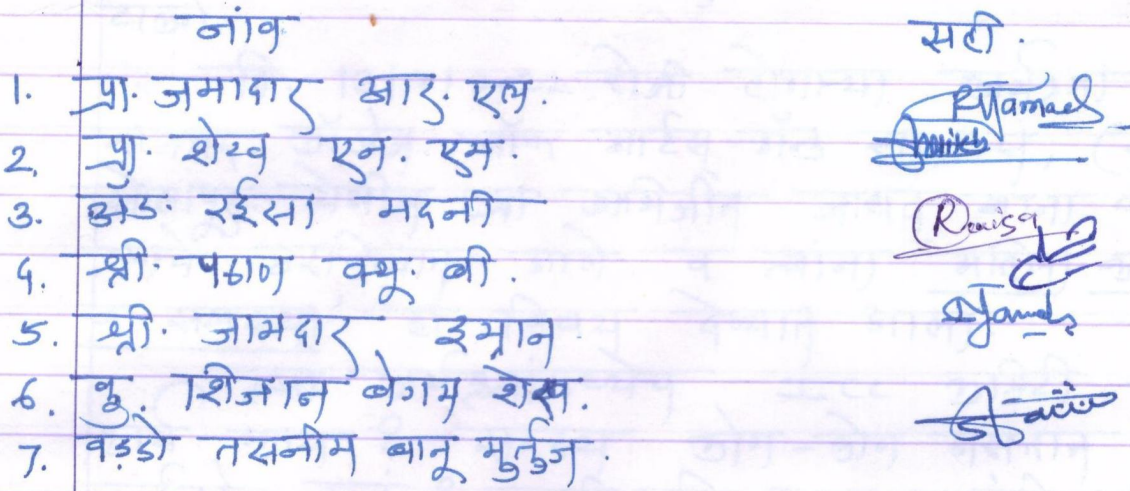 नांव सही.
1. प्रा. जमादार आर. एल.
2. प्रा. शेख एन. एम.
3. अॅड रईसा मदनी Raisa
4. श्री. पठाण क्यू. बी.
5. श्री. जामदार इम्रान
6. कु. शिजान बेगम शेख.
7. वड्डो तसनीम बानू मुर्तुज.